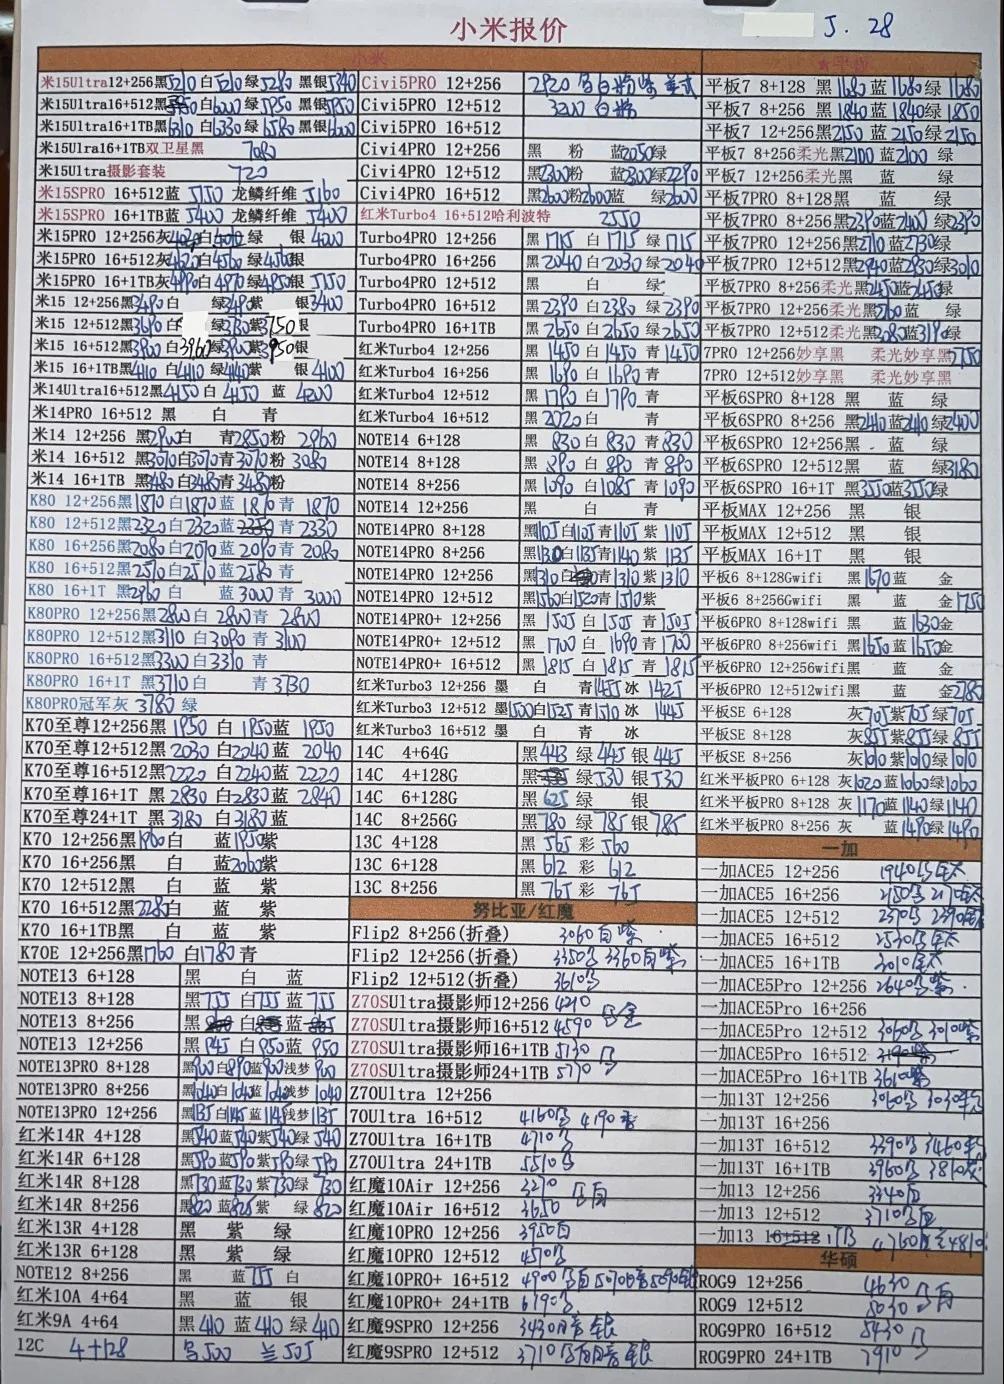 小米报价
5.28
小米
米15Ultra12+256黑5210白5210绿5280黑银5340
米15Ultra16+512黑 白6000绿5950黑银5950
米15Ultra16+1TB黑6310白6330绿6580黑银6600
米15Ulra16+1TB双卫星黑 7080
米15Ultra摄影套装 720
米15SPRO 16+512蓝 5150 龙鳞纤维 5160
米15SPRO 16+1TB蓝 5400 龙鳞纤维 5400
米15PRO 12+256灰4020白4010绿 银 4000
米15PRO 16+512灰4620白4560绿4560银
米15PRO 16+1TB灰4990白4970绿4950银5150
米15 12+256黑3490白 绿3490紫 银3400
米15 12+512黑3690白 绿 紫3750银
米15 16+512黑3900白3960绿3900紫3950银
米15 16+1TB黑4110白4110绿4140紫 银4100
米14Ultra16+512黑4150白 4150 蓝 4200
米14PRO 16+512 黑 白 青
米14 12+256 黑2900白 青2850粉 2960
米14 16+512 黑3070白3070青3070粉 3080
米14 16+1TB 黑3480白3480青3480粉
K80 12+256黑1870白1870蓝 1870青 1870
K80 12+512黑2320白2320蓝 青 2330
K80 16+256黑2080白2070蓝 2090青 2080
K80 16+512黑2510白2510蓝 2580青
K80 16+1T 黑2960白 蓝 3000青 3000
K80PRO 12+256黑2800白 2800青 2800
K80PRO 12+512黑3110白 3090青 3100
K80PRO 16+512黑3300白3310青
K80PRO 16+1T 黑3710白 青3730
K80PRO冠军灰 3780绿
K70至尊12+256黑 1950 白 1950蓝 1950
K70至尊12+512黑 2030 白2040蓝 2040
K70至尊16+512黑2220 白2240蓝 2220
K70至尊16+1T 黑 2830 白2830蓝 2840
K70至尊24+1T 黑 3180 白3180蓝
K70 12+256黑1960白 蓝1955紫
K70 16+256黑 白 蓝2060紫
K70 12+512黑 白 蓝 紫
K70 16+512黑2280白 蓝 紫
K70 16+1TB黑 白 蓝 紫
K70E 12+256黑1760 白1780青
NOTE13 6+128 黑 白 蓝
NOTE13 8+128 黑755 白755 蓝755
NOTE13 8+256 黑 白 蓝
NOTE13 12+256 黑945 白950蓝 950
NOTE13PRO 8+128 黑900白890蓝900浅梦900
NOTE13PRO 8+256 黑1040白1040蓝1040浅梦1040
NOTE13PRO 12+256 黑1135白1145蓝1145浅梦1135
红米14R 4+128 黑540蓝540紫540绿540
红米14R 6+128 黑590蓝590紫590绿590
红米14R 8+128 黑730蓝730紫730绿730
红米14R 8+256 黑820蓝825紫 绿820
红米13R 4+128 黑 紫 绿
红米13R 6+128 黑 紫 绿
NOTE12 8+256 黑 蓝755白
红米10A 4+64 黑 蓝 银
红米9A 4+64 黑410蓝410绿410
12C 4+128 黑500 兰505
Civi5PRO 12+256 2820 黑白粉紫
Civi5PRO 12+512 3200 白粉
Civi5PRO 16+512
Civi4PRO 12+256 黑 粉 蓝2050绿
Civi4PRO 12+512 黑2300粉 蓝2300绿2290
Civi4PRO 16+512 黑2600粉2600蓝 绿2600
红米Turbo4 16+512哈利波特 2550
Turbo4PRO 12+256 黑1715白1715绿1715
Turbo4PRO 16+256 黑2040白2030绿2040
Turbo4PRO 12+512 黑 白 绿
Turbo4PRO 16+512 黑2390白2380绿2390
Turbo4PRO 16+1TB 黑2650白2650绿2650
红米Turbo4 12+256 黑1450白1450青1450
红米Turbo4 16+256 黑1690白1690青
红米Turbo4 12+512 黑1790白1790青
红米Turbo4 16+512 黑2020白 青
NOTE14 6+128 黑830白830青830
NOTE14 8+128 黑890白890青890
NOTE14 8+256 黑1090白1085青1090
NOTE14 12+256 黑 白 青
NOTE14PRO 8+128 黑1105白1105青1105紫1105
NOTE14PRO 8+256 黑1130白1135青1140紫1135
NOTE14PRO 12+256 黑1310白 青1310紫1310
NOTE14PRO 12+512 黑1560白1520青1510紫
NOTE14PRO+ 12+256 黑1505白1505青1505
NOTE14PRO+ 12+512 黑1700白1690青1700
NOTE14PRO+ 16+512 黑1815白1815青1815
红米Turbo3 12+256 墨 白 青1455冰 1425
红米Turbo3 12+512 墨1500白1525青1510冰 1445
红米Turbo3 16+512 墨 白 青 冰
14C 4+64G 黑443绿445银445
14C 4+128G 黑 绿530银530
14C 6+128G 黑625绿 银
14C 8+256G 黑780绿785银785
13C 4+128 黑565彩560
13C 6+128 黑612彩612
13C 8+256 黑765彩765
努比亚/红魔
Flip2 8+256(折叠) 3060白紫
Flip2 12+256(折叠) 3350黑 3360白紫
Flip2 12+512(折叠) 3610黑
Z70SUltra摄影师12+256 4210
Z70SUltra摄影师16+512 4590 黑金
Z70SUltra摄影师16+1TB 5130 黑
Z70SUltra摄影师24+1TB 5770
Z70Ultra 12+256
70Ultra 16+512 4160黑 4190
Z70Ultra 16+1TB 4710黑
Z70Ultra 24+1TB 5510黑
红魔10Air 12+256 3210 黑白
红魔10Air 16+512 3650
红魔10PRO 12+256 3950白
红魔10PRO 12+512 4570黑
红魔10PRO+ 16+512 4900黑白5070
红魔10PRO+ 24+1TB 6190黑
红魔9SPRO 12+256 3430 银
红魔9SPRO 12+512 3710黑 银
平板
平板7 8+128 黑1680蓝1680绿1680
平板7 8+256 黑1840蓝1840绿1850
平板7 12+256黑2150蓝2150绿2150
平板7 8+256柔光黑2100蓝2100 绿
平板7 12+256柔光黑 蓝 绿
平板7PRO 8+128黑 蓝 绿
平板7PRO 8+256黑2390蓝2400绿2390
平板7PRO 12+256黑2710蓝2730绿
平板7PRO 12+512黑2940蓝2930绿3010
平板7PRO 8+256柔光黑2450蓝2450绿
平板7PRO 12+256柔光黑2760蓝 绿
平板7PRO 12+512柔光黑 蓝3190绿
7PRO 12+256妙享黑 柔光妙享黑
7PRO 12+512妙享黑 柔光妙享黑
平板6SPRO 8+128 黑 蓝 绿
平板6SPRO 8+256 黑2410蓝2410绿2400
平板6SPRO 12+256黑 蓝 绿
平板6SPRO 12+512黑 蓝 绿3180
平板6SPRO 16+1T 黑3550蓝3550绿
平板MAX 12+256 黑 银
平板MAX 12+512 黑 银
平板MAX 16+1T 黑 银
平板6 8+128Gwifi 黑1670蓝 金
平板6 8+256Gwifi 黑 蓝 金1750
平板6PRO 8+128wifi 黑 蓝1630金
平板6PRO 8+256wifi 黑1650蓝1650金
平板6PRO 12+256wifi黑 蓝 金
平板6PRO 12+512wifi黑 蓝 金2780
平板SE 6+128 灰705紫705绿705
平板SE 8+128 灰855紫855绿855
平板SE 8+256 灰1010紫1010绿1010
红米平板PRO 6+128 灰1020蓝1060绿1060
红米平板PRO 8+128 灰1170蓝1140绿1140
红米平板PRO 8+256 灰 蓝1490绿1490
一加
一加ACE5 12+256 1940黑
一加ACE5 16+256 2150黑
一加ACE5 12+512 2370黑
一加ACE5 16+512 2530黑
一加ACE5 16+1TB 3010
一加ACE5Pro 12+256 2640黑紫
一加ACE5Pro 16+256
一加ACE5Pro 12+512 3060黑 3010紫
一加ACE5Pro 16+512
一加ACE5Pro 16+1TB 3610紫
一加13T 12+256 3060黑 3030
一加13T 16+256
一加13T 16+512 3390黑 3460
一加13T 16+1TB 3960黑 3810
一加13 12+256 3340白
一加13 12+512 3710黑白
一加13 1TB 4760 4810
华硕
ROG9 12+256 4630 黑白
ROG9 12+512 5030
ROG9PRO 16+512 5430 黑
ROG9PRO 24+1TB 7910